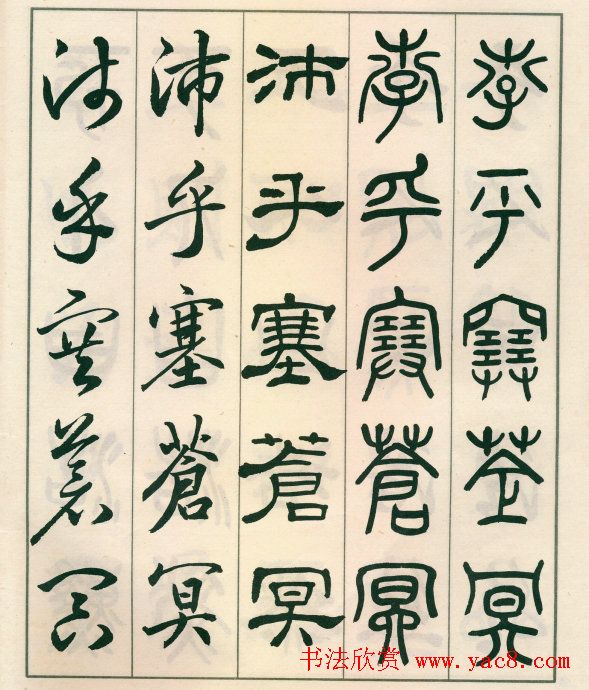 孛乎塞蒼冥
孛乎塞蒼冥
沛乎塞蒼冥
沛乎塞蒼冥
沛乎塞蒼冥
书法欣赏 www.yac8.com